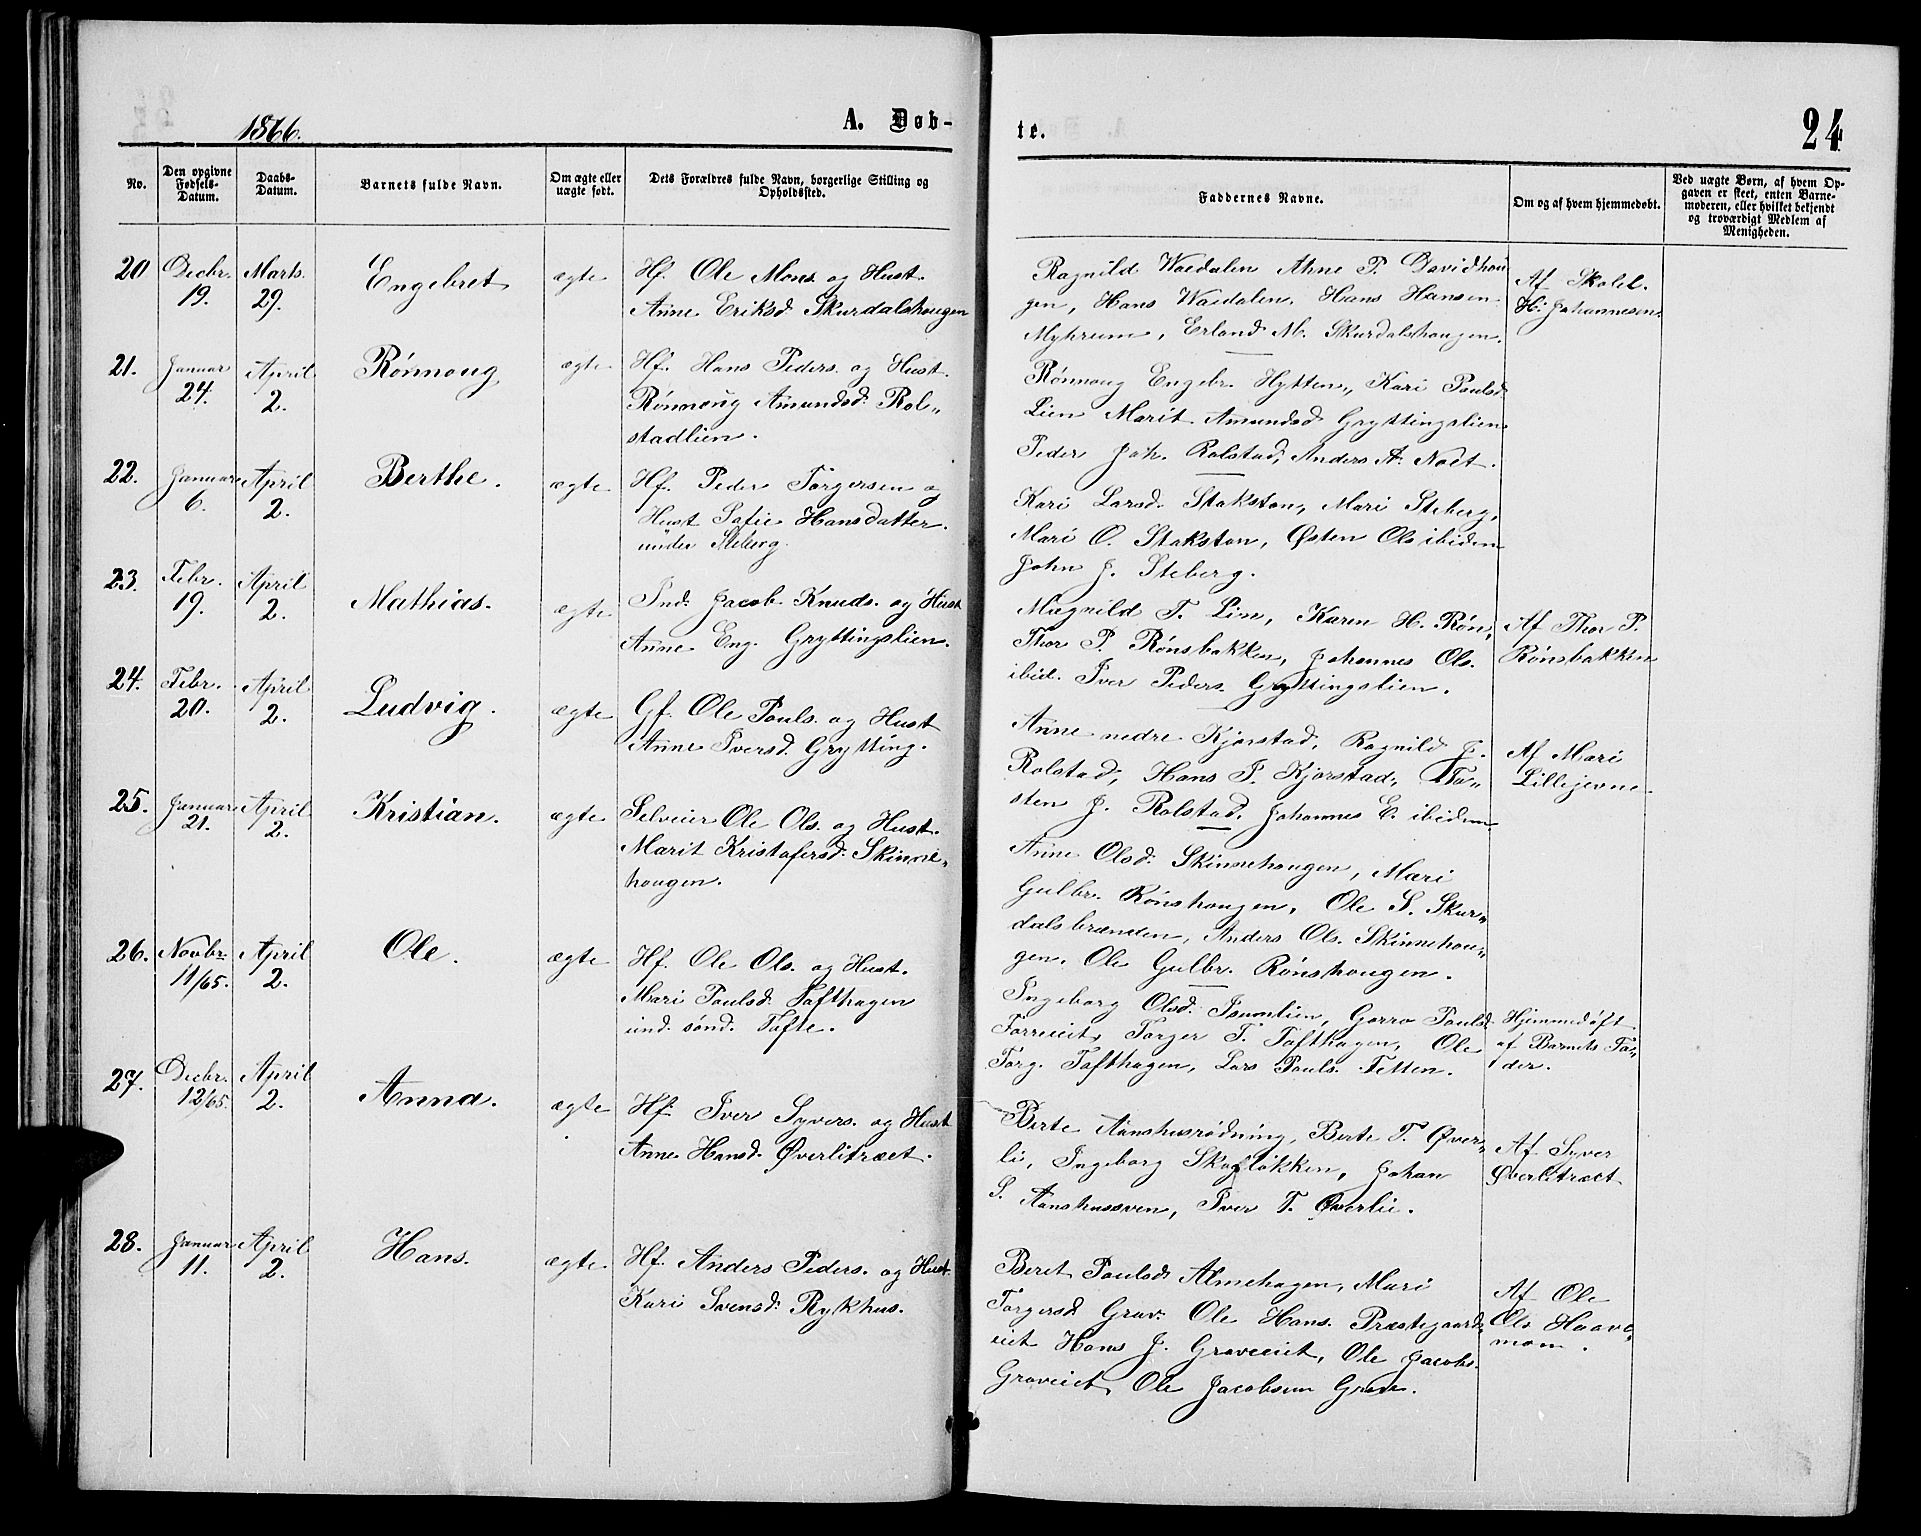 1866.
A. Døb-
te.
24
No.
Den opgivne Fødsels-Datum.
Daabs-Datum.
Barnets fulde Navn.
Om ægte eller uægte født.
Dets Forældres fulde Navn, borgerlige Stilling og Opholdssted.
Faddernes Navne.
Om og af hvem hjemmedøbt.
Ved uægte Børn, af hvem Op-
gaven er skeet, enten Barne-
moderen, eller hvilket bekjendt
og troværdigt Medlem af
Menigheden.
20 Decbr. 19. Marts. 29. Engebret ægte
Hf. Ole Mons. og Hust.
Anne Eriksd. Skurdalshougen
Ragnild Waedalen Anne P. Davidhou
gen, Hans Waedalen, Hans Hansen
Myhrum, Erland M. Skurdalshougen.
Af Skolel.
H. Johannesen.
21. Januar 24. April 2. Rønnoug ægte
Hf. Hans Peders. og Hust.
Rønnoug Amundsd. Rol-
stadlien.
Rønnoug Engebr. Hytten, Kari Poulsd.
Lien Marit Amundsd Gryttingslien
Peder Joh. Rolstad, Anders A. Noet.
22. Januar 6. April 2. Berthe. ægte
Hf. Peder Torgersen og
Hust Sofie Hansdatter.
under Steberg.
Kari Larsd. Stakston, Mari Steberg,
Mari O. Stakston, Østen Ols ibidem
John J. Steberg.
23. Febr. 19. April 2. Mathias. ægte
Ind. Jacob Knuds. og Hust
Anne Eng. Gryttingslien.
Magnild T. Lien, Karen H. Røn,
Thor P. Rønsbakken, Johannes Ols.
ibid. Iver Peders. Gryttingslien.
Af Thor P.
Rønsbakken
24. Febr. 20. April 2. Ludvig. ægte
Gf. Ole Pouls. og Hust
Anne Iversd. Grytting.
Anne nedre Kjorstad, Ragnild J.
Rolstad, Hans P. Kjorstad, To-
sten J. Rolstad, Johannes E. ibidem
Af Mari
Lillejevne.
25. Januar 21. April 2. Kristian. ægte
Selveier Ole Ols. og Hust.
Marit Kristofersd. Skinne-
hougen.
Anne Olsd. Skinnehougen, Mari
Gulbr. Rønshougen, Ole S. Skur-
dalsbrænden, Anders Ols. Skinnehou-
gen. Ole Gulbr. Rønshougen.
26. Novbr. 11/65. April 2. Ole. ægte
Hf. Ole Ols. og Hust.
Mari Poulsd. Tofthagen
und. sønd. Tofte.
Ingeborg Olsd. Gorro Poulsd
Torger T. Tofthagen, Ole
Torg. Tofthagen, Lars Pouls. Tetten.
Hjemmedøbt
af Barnets Fa-
der.
27. Decbr. 12/65. April 2. Anna. ægte
Hf. Iver Syvers. og Hust
Anne Hansd. Øverlitræet.
Berte Aanshusrødning, Berte T. Øver-
li, Ingeborg Skogløkken, Johan
S. Aanshussven, Iver T. Øverlie.
Af Syver
Øverlitræet
28. Januar 11. April 2. Hans. ægte
Hf. Anders Peders. og Hust.
Kari Svensd. Rykhus.
Beret Poulsd. Almehagen, Mari
Torgersd Grav. Ole Hans. Præstegaards-
eiet Hans J. Graveiet, Ole Jacobs.
Graveiet, Ole Jacobsen Grave.
Af Ole
Ols Haave-
moen.